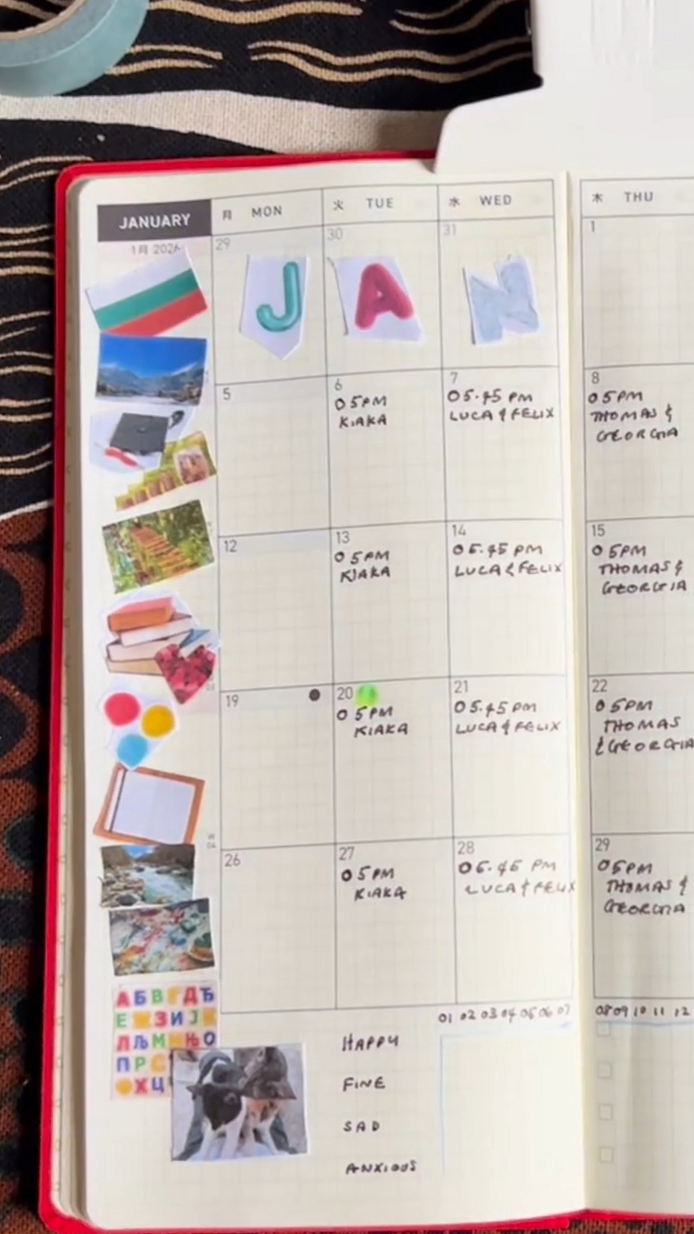 JANUARY
1月 2026
月 MON
火 TUE
水 WED
木 THU
29
30
31
1
J
A
N
5
6
05PM
KIAKA
7
05.45 PM
LUCA & FELIX
8
05PM
THOMAS &
GEORGIA
12
13
05PM
KIAKA
14
05.45 PM
LUCA & FELIX
15
05PM
THOMAS &
GEORGIA
19
20
05PM
KIAKA
21
05.45 PM
LUCA & FELIX
22
05PM
THOMAS
& GEORGIA
26
27
05PM
KIAKA
28
05.45 PM
LUCA & FELIX
29
05PM
THOMAS &
GEORGIA
01 02 03 04 05 06 07
08 09 10 11 12
HAPPY
FINE
SAD
ANXIOUS
А Б В Г Д Ђ
Е З И Ј
Л Љ М Њ О
П Р С
Х Ц